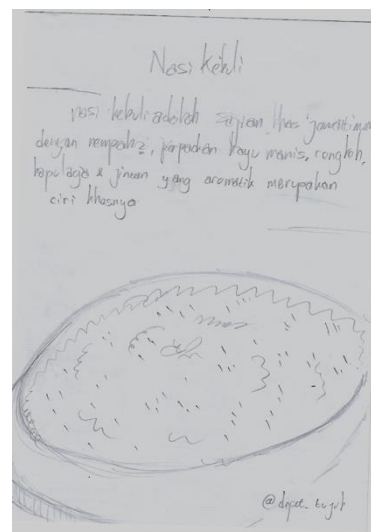 Nasi kebuli
nasi kebuli adalah sajian khas jawatimur
dengan rempah2, perpaduan kayu manis, cengkeh,
kapulaga & jintan yang aromatik merupakan
ciri khasnya